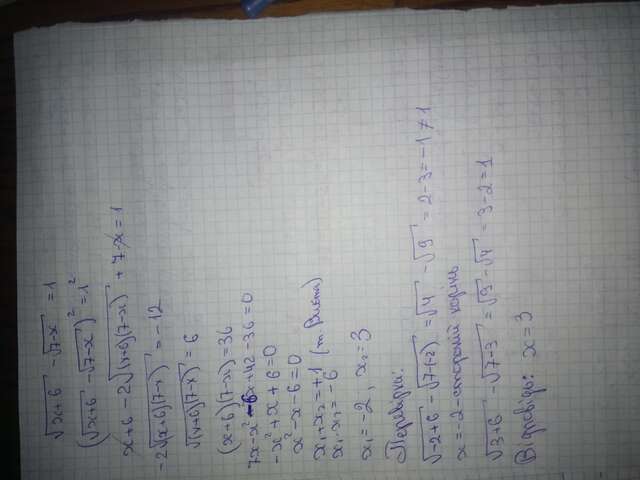 √x+6 - √7-x = 1
(√x+6 - √7-x)² = 1²
x+6-2√(x+6)(7-x) + 7-x = 1
-2√(x+6)(7-x) = -12
√(x+6)(7-x) = 6
(x+6)(7-x) = 36
7x-x²-6x+42-36=0
-x²+x+6=0
x²-x-6=0
x₁+x₂=+1 (т. Вієта)
x₁·x₂=-6
x₁=-2, x₂=3
Перевірка:
√-2+6 - √7-(-2) = √4 - √9 = 2-3=-1≠1
x=-2-сторонній корінь
√3+6 - √7-3 = √9 - √4 = 3-2=1
Відповідь: x=3